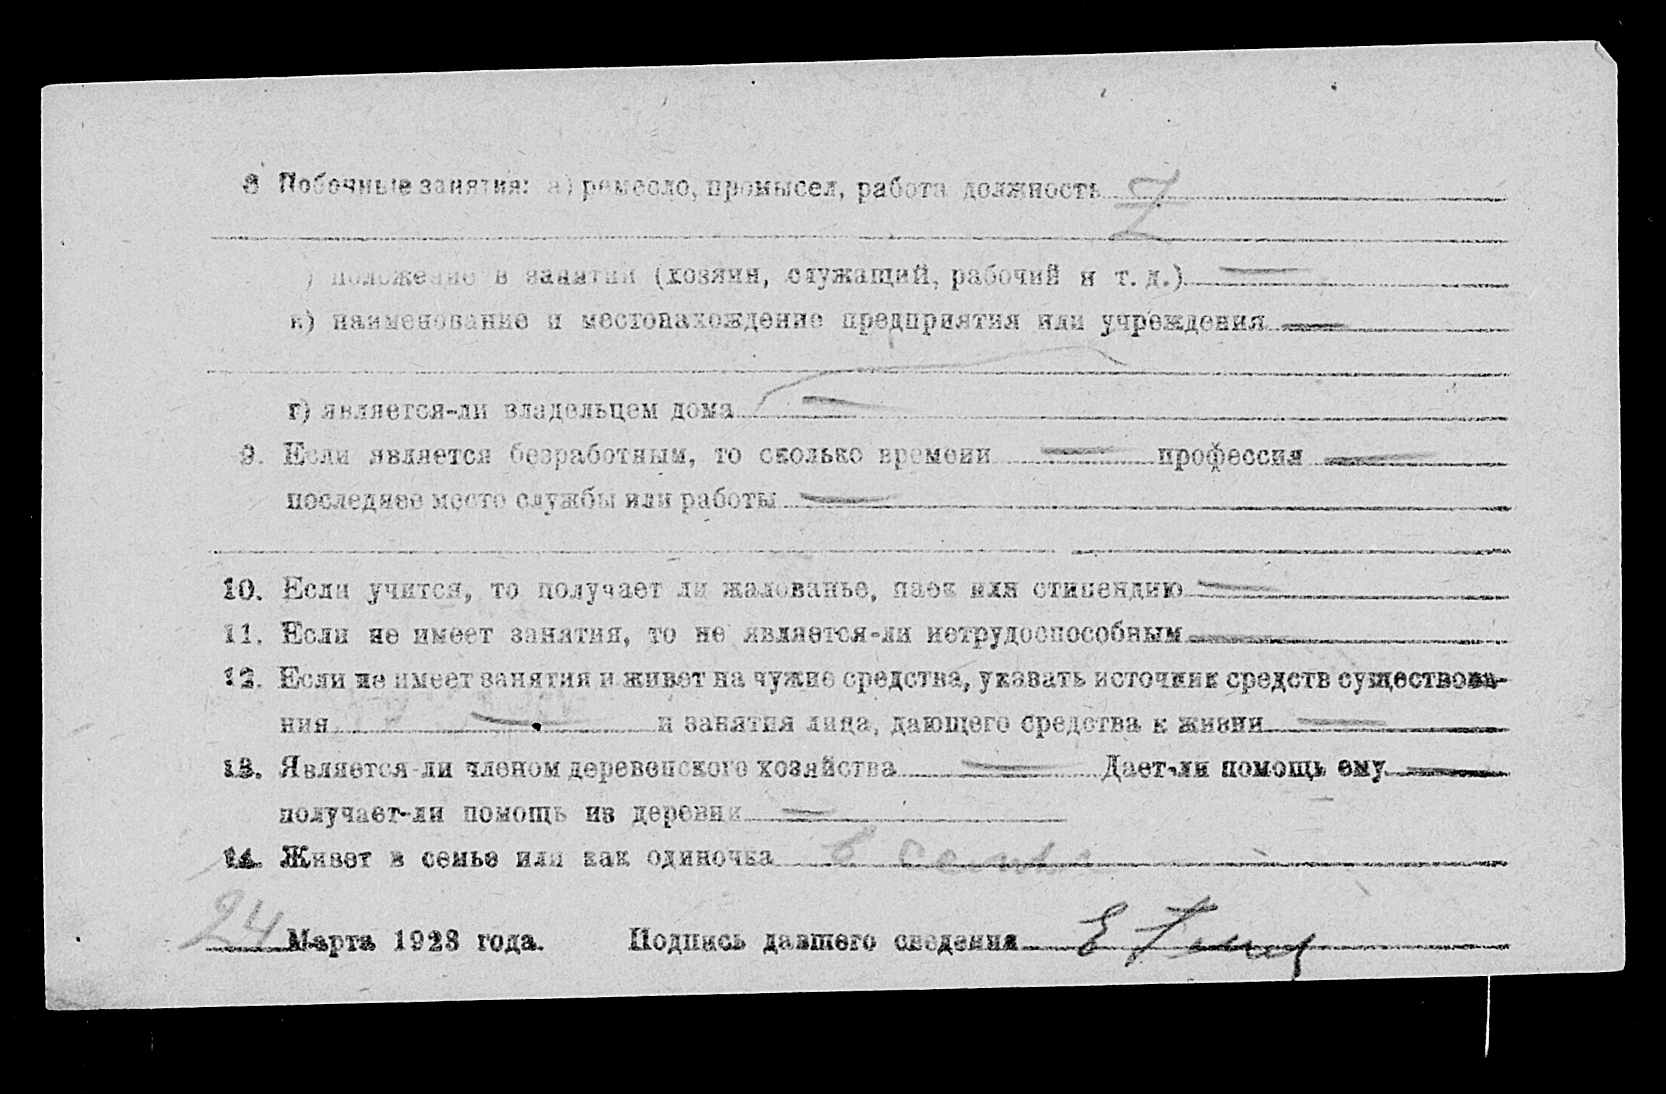 8 Побочные занятия: а) ремесло, промысел, работа должность
) положение в занятии (хозяин, служащий, рабочий и т. д.) —
в) наименование и местонахождение предприятия или учреждения —
г) является-ли владельцем дома —
9. Если является безработным, то сколько времени — профессия —
последнее место службы или работы —
10. Если учится, то получает ли жалованье, паек или стипендию —
11. Если не имеет занятия, то не является-ли нетрудоспособным —
12. Если не имеет занятия и живет на чужие средства, указать источник средств существова-
ния — и занятия лица, дающего средства к жизни —
13. Является-ли членом деревенского хозяйства — Дает-ли помощь ему —
получает-ли помощь из деревни —
14. Живет в семье или как одиночка в семье
24 Марта 1923 года. Подпись давшего сведения Е